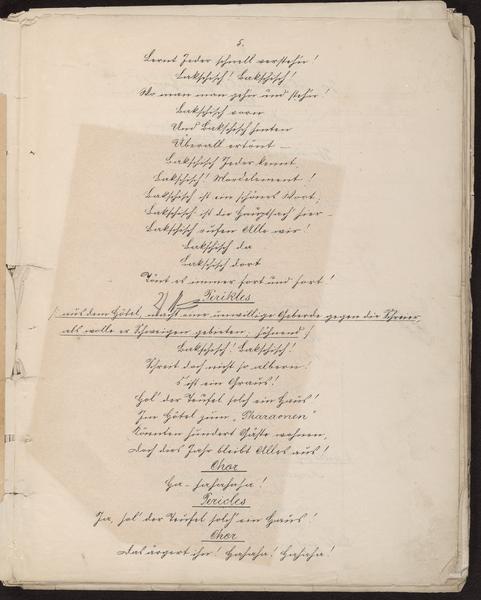 5.
Lernt Jeder schnell verstehn!
Bakschisch! Bakschisch!
Wo man mag gehn und stehn!
Bakschisch vorn
Und Bakschisch hinten
Überall ertönt –
Bakschisch Jeder kennt
Bakschisch! Mordelement!
Bakschisch ist ein schönes Wort,
Bakschisch ist die Hauptsach' hier –
Bakschisch rufen Alle wir!
Bakschisch da
Bakschisch dort
Tönt es immer fort und fort!
Perikles
(aus dem Hôtel, macht eine unwillige Geberde gegen die Schreier,
als wolle er Schweigen gebieten; höhnend)
Bakschisch! Bakschisch!
Schreit doch nicht so albern!
's ist ein Graus!
Hol' der Teufel solch ein Haus!
Im Hôtel zum „Pharaonen"
Könnten hundert Gäste wohnen,
Doch dies Jahr bleibt Alles aus!
Chor
Ha - hahahaha!
Pericles
Ja, hol' der Teufel solch' ein Haus!
Chor
Das ärgert ihn! Hahaha! Hahaha!